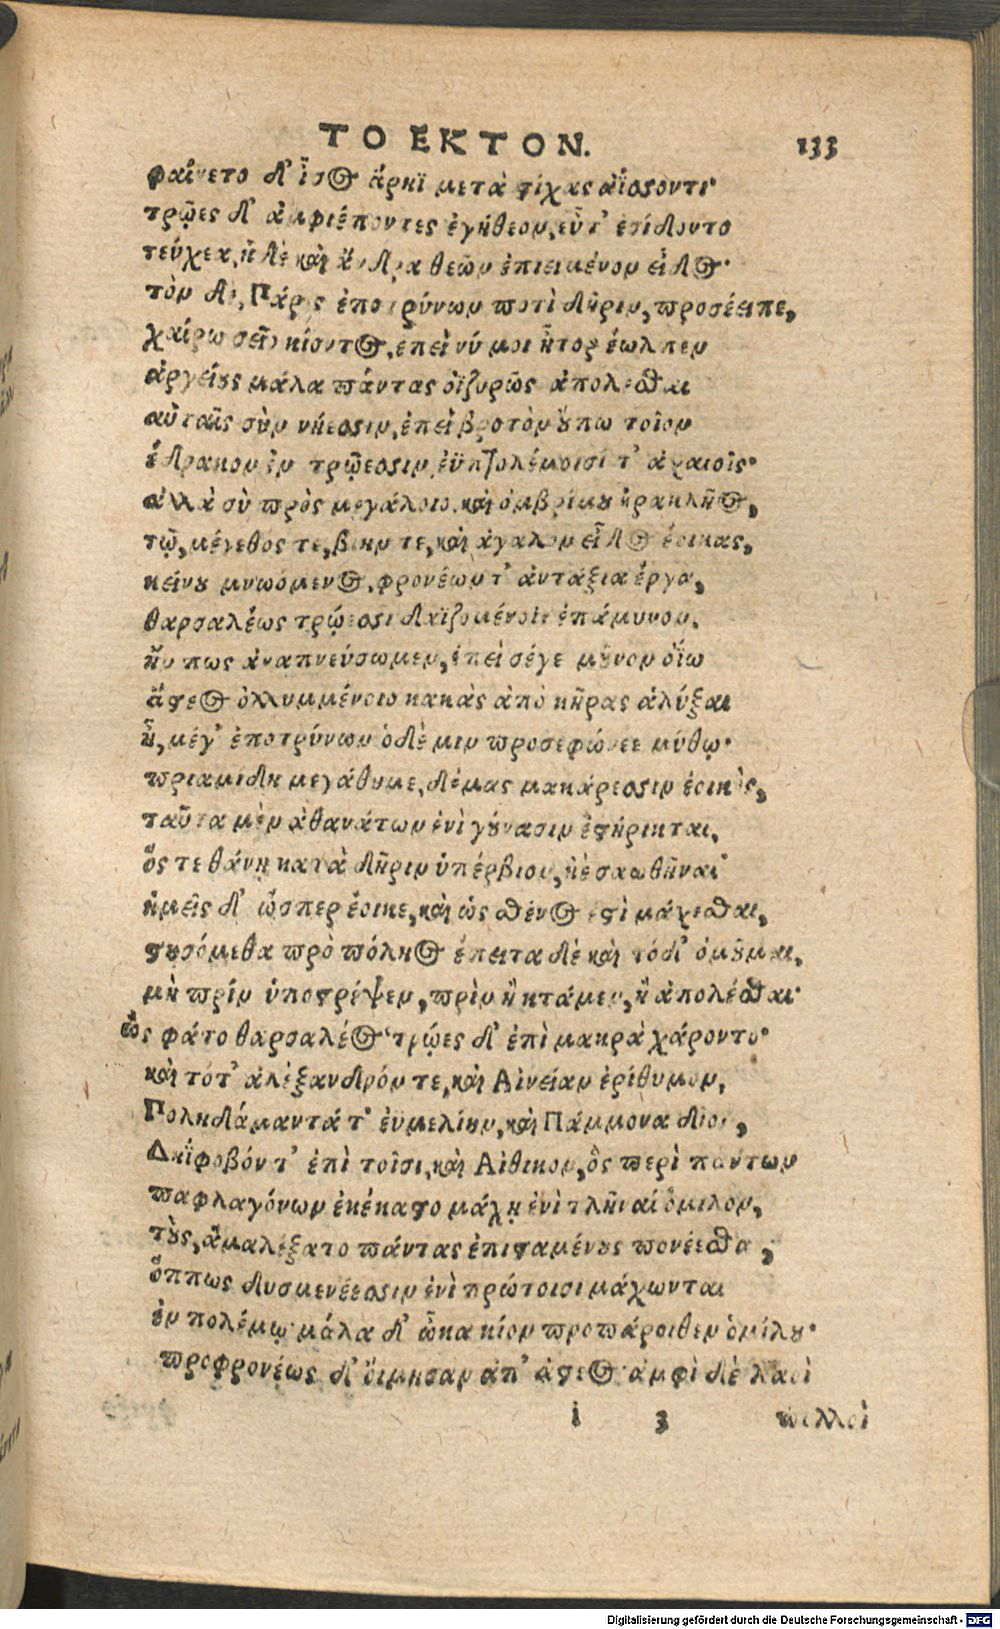 ΤΟ ΕΚΤΟΝ. 133
φαίνετο δ' ἶσος ἄρηϊ μετὰ στίχας ἀΐσσοντι·
τρῶες δ' ἀμφιέποντες ἐγήθεον, εὖτ' ἐσίδοντο
τεύχεα, ἠδὲ καὶ ἄνδρα θεῶν ἐπιειμένον εἶδος·
τὸν δὲ, Πάρις ἐποτρύνων ποτὶ δῆριν, προσέειπε,
χαίρω σεῖο κίοντος, ἐπεὶ νύ μοι ἦτορ ἐώλπεν
ἀργείους μάλα πάντας ὀϊζυρῶς ἀπολέσθαι
αὐταῖς σὺν νήεσσιν, ἐπεὶ βροτὸν οὔπω τοῖον
ἔδρακον ἐν τρώεσσιν, ἐϋπτολέμοισί τ' ἀχαιοῖς·
ἀλλὰ σὺ πρὸς μεγάλοιο, καὶ ὀμβρίμου ἡρακλῆος,
τῷ, μέγεθος τε, βίην τε, καὶ ἀγαλὸν εἶδος ἔοικας,
κείνου μνωόμενος, φρονέων τ' ἀντάξια ἔργα,
θαρσαλέως τρώεσσι δαϊζομένοις ἐπάμυνον,
ἤν πως ἀναπνεύσωμεν, ἐπεὶ σέγε μοῦνον ὀΐω
ἄστεος ὀλλυμμένοιο κακὰς ἀπὸ κῆρας ἀλύξαι
ἦ, μέγ' ἐποτρύνων ὁ δὲ μιν προσεφώνεε μύθῳ·
πριαμίδη μεγάθυμε, δέμας μακάρεσσιν ἐοικὼς,
ταῦτα μὲν ἀθανάτων ἐνὶ γούνασιν ἐστήρικται,
ὅς τε θάνῃ κατὰ δῆριν ὑπέρβιον, ἠὲ σαωθῆναι
ἡμεῖς δ' ὥσπερ ἔοικε, καὶ ὡς σθένος ἐστὶ μάχεσθαι,
στησόμεθα πρὸ πόληος ἔπειτα δὲ καὶ τόδ' ὀμοῦμαι,
μὴ πρίν ὑποστρέψειν, πρὶν ἢ κτάμεν, ἢ ἀπολέσθαι·
ὣς φάτο θαρσαλέος· τρώες δ' ἐπὶ μακρὰ χάροντο·
καὶ τότ' ἀλέξανδρόν τε, καὶ Αἰνείαν ἐρίθυμον,
Πολυδάμαντά τ' ἐϋμελίην, καὶ Πάμμονα δῖον,
Δηΐφοβόν τ' ἐπὶ τοῖσι, καὶ Αἴθικον, ὃς περὶ πάντων
παφλαγόνων ἐκέκαστο μάχῃ ἐνὶ τλῆναι ὅμιλον,
τοὺς, ἅμα λέξατο πάντας ἐπισταμένους πονέεσθαι,
ὅππως δυσμενέεσσιν ἐνὶ πρώτοισι μάχωνται
ἐν πολέμῳ· μάλα δ' ὦκα κίον προπάροιθεν ὁμίλου·
προφρονέως δ' οἴμησαν ἀπ' ἄστεος· ἀμφὶ δὲ λαοὶ
i 3 πολλοὶ
Digitalisierung gefördert durch die Deutsche Forschungsgemeinschaft - DFG